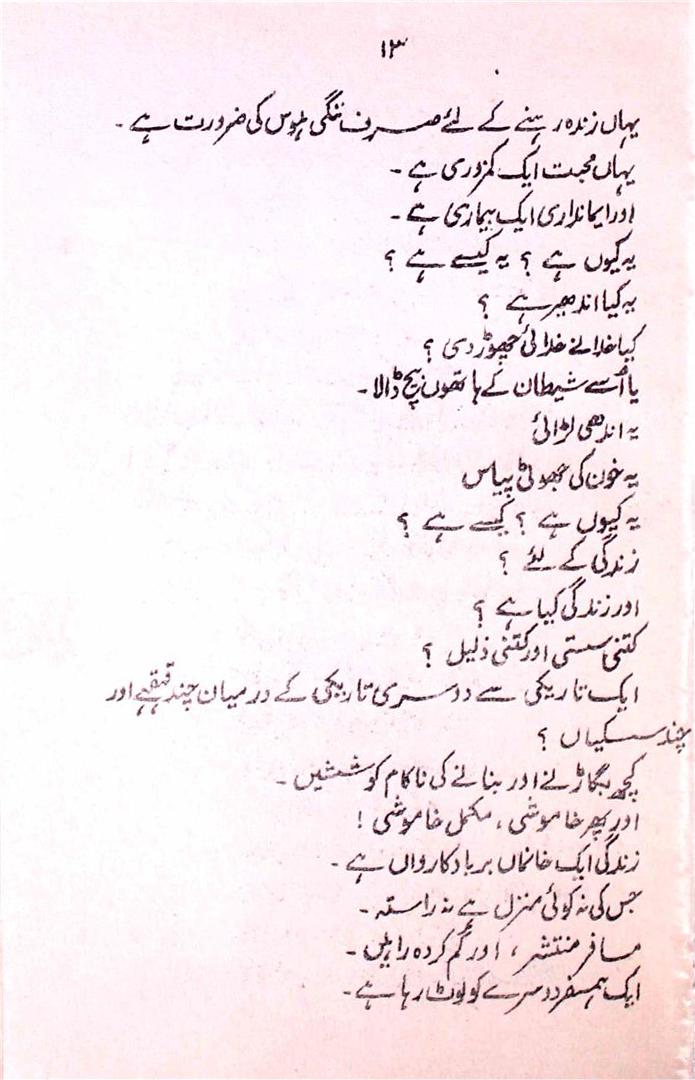 ۱۳
یہاں زندہ رہنے کے لئے صرف ننگی ہوس کی ضرورت ہے۔
یہاں محبت ایک کمزوری ہے۔
اور ایمانداری ایک بیماری ہے۔
یہ کیوں ہے ؟ یہ کیسے ہے ؟
یہ کیا اندھیر ہے ؟
کیا خدا نے خدائی چھوڑ دی ؟
یا اُسے شیطان کے ہاتھوں بیچ ڈالا۔
یہ اندھی لڑائی
یہ خون کی جھوٹی پیاس
یہ کیوں ہے ؟ کیسے ہے ؟
زندگی کے لئے ؟
اور زندگی کیا ہے ؟
کتنی سستی اور کتنی ذلیل ؟
ایک تاریکی سے دوسری تاریکی کے درمیان چند قہقہے اور
چند سسکیاں ؟
کچھ بگاڑنے اور بنانے کی ناکام کوششیں۔
اور پھر خاموشی، مکمل خاموشی !
زندگی ایک خانماں برباد کارواں ہے۔
جس کی نہ کوئی منزل ہے نہ راستہ۔
مسافر منتشر، اور گم کردہ راہیں۔
ایک ہمسفر دوسرے کو لوٹ رہا ہے۔